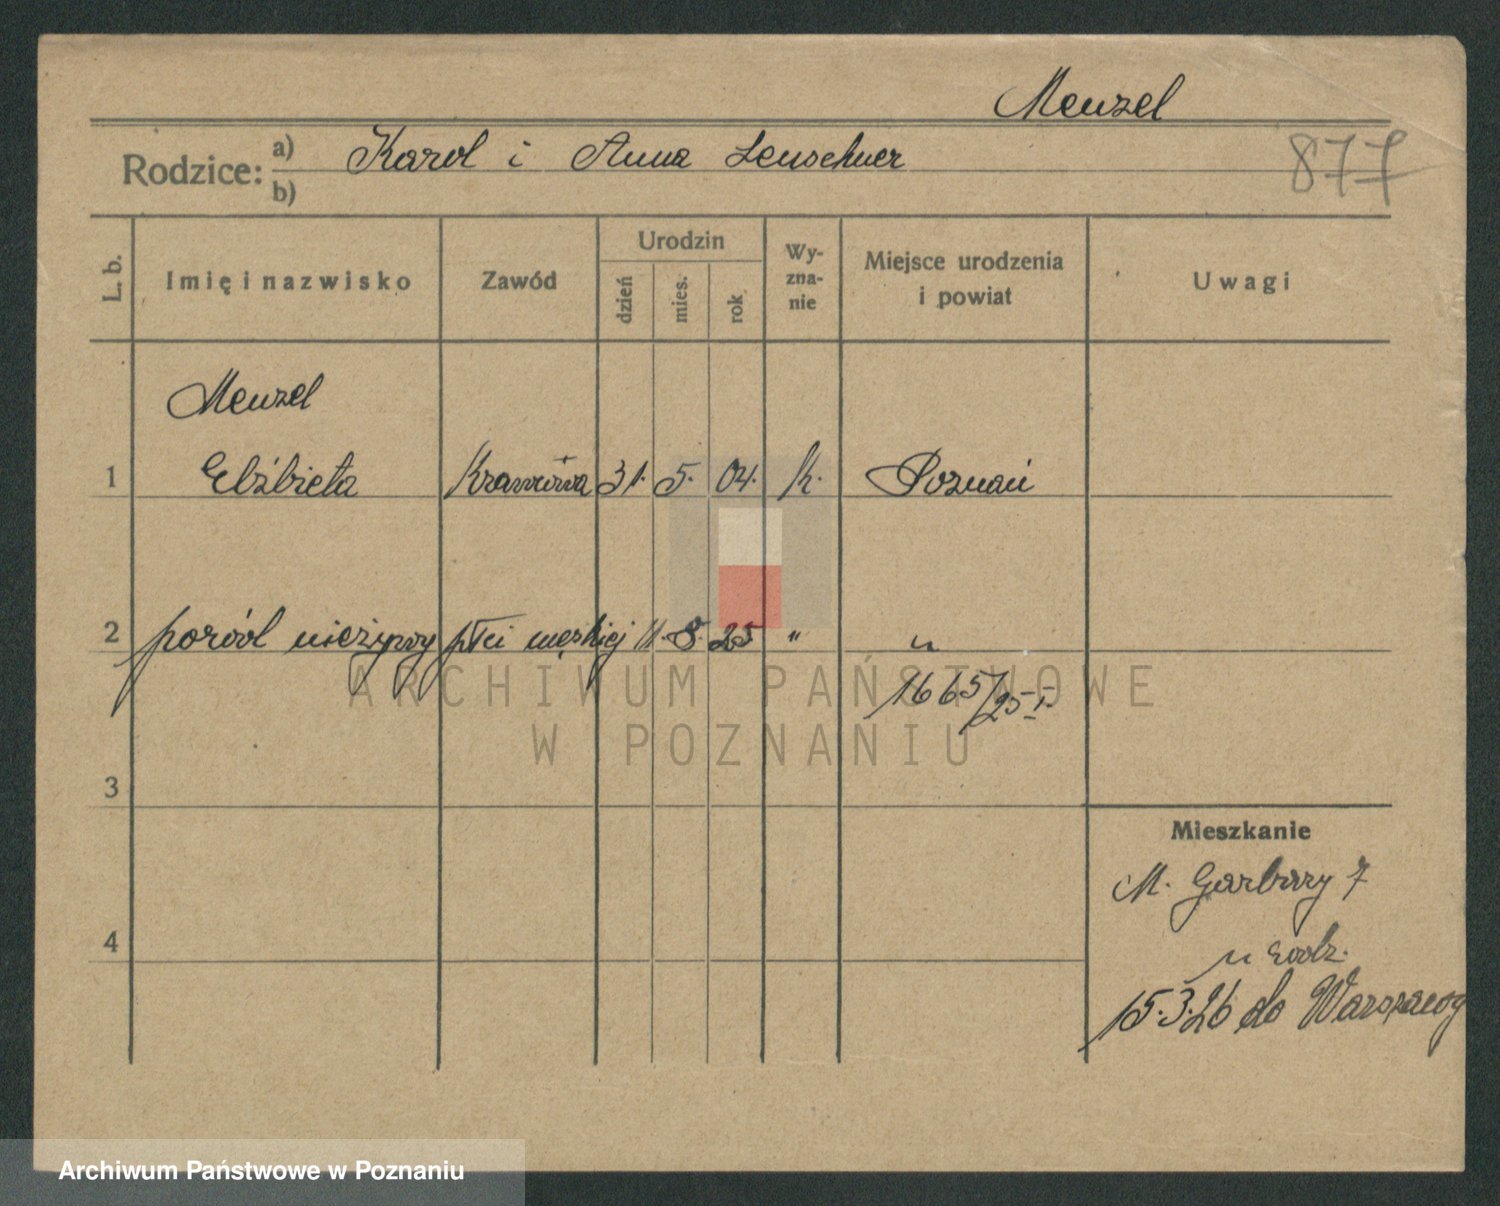 Menzel
Rodzice: a) Karol i Anna Leuschner
b)
877
L. b.
Imię i nazwisko
Zawód
Urodzin
dzień
mies.
rok
Wy-
zna-
nie
Miejsce urodzenia
i powiat
Uwagi
Menzel
1 Elżbieta Krawcowa 31. 5. 04. k. Poznań
2 poród nieżywy płci męskiej 11. 8. 25 " "
1665/25 I.
3
Mieszkanie
M. Garbary 7
u rodz.
4
15.3.26 do Warszawy
ARCHIWUM PAŃSTWOWE
W POZNANIU
Archiwum Państwowe w Poznaniu